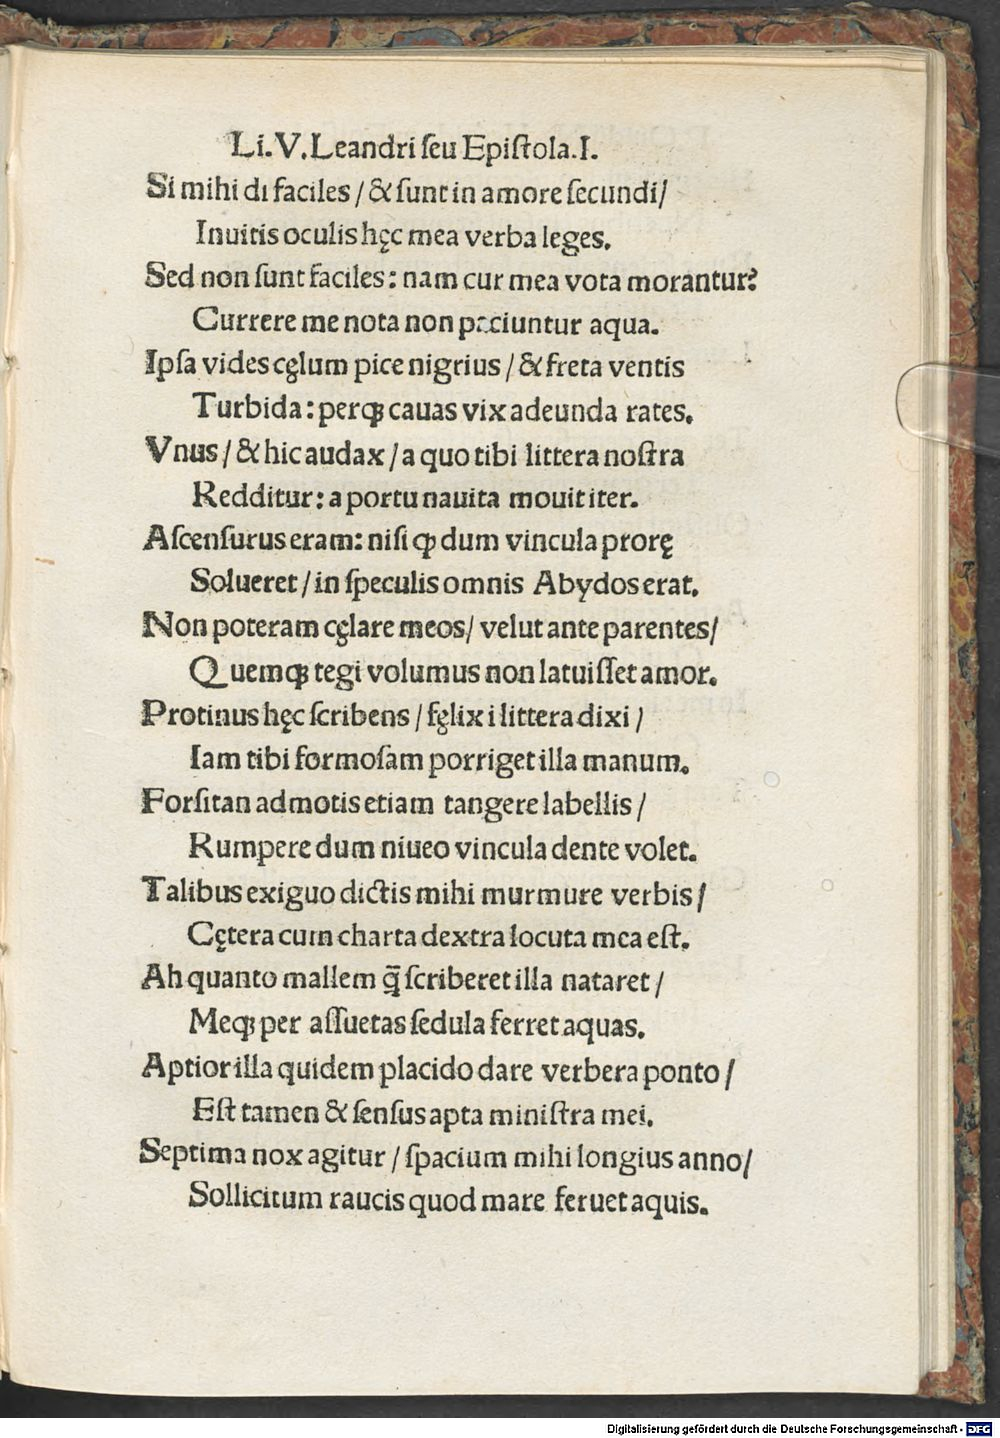 Li.V.Leandri ſeu Epiſtola.I.
Si mihi di faciles / & ſunt in amore ſecundi /
Inuitis oculis hęc mea verba leges.
Sed non ſunt faciles: nam cur mea vota morantur?
Currere me nota non paciuntur aqua.
Ipſa vides cęlum pice nigrius / & freta ventis
Turbida: perqꝫ cauas vix adeunda rates.
Vnus / & hic audax / a quo tibi littera noſtra
Redditur: a portu nauita mouit iter.
Aſcenſurus eram: niſi ꝙ dum vincula prorę
Solueret / in ſpeculis omnis Abydos erat.
Non poteram cęlare meos / velut ante parentes /
Quemqꝫ tegi volumus non latuiſſet amor.
Protinus hęc ſcribens / fęlix i littera dixi /
Iam tibi formoſam porriget illa manum.
Forſitan admotis etiam tangere labellis /
Rumpere dum niueo vincula dente volet.
Talibus exiguo dictis mihi murmure verbis /
Cętera cum charta dextra locuta mea eſt.
Ah quanto mallem q̄ꝫ ſcriberet illa nataret /
Meqꝫ per aſſuetas ſedula ferret aquas.
Aptior illa quidem placido dare verbera ponto /
Eſt tamen & ſenſus apta miniſtra mei.
Septima nox agitur / ſpacium mihi longius anno /
Sollicitum raucis quod mare feruet aquis.
Digitalisierung gefördert durch die Deutsche Forschungsgemeinschaft - DFG